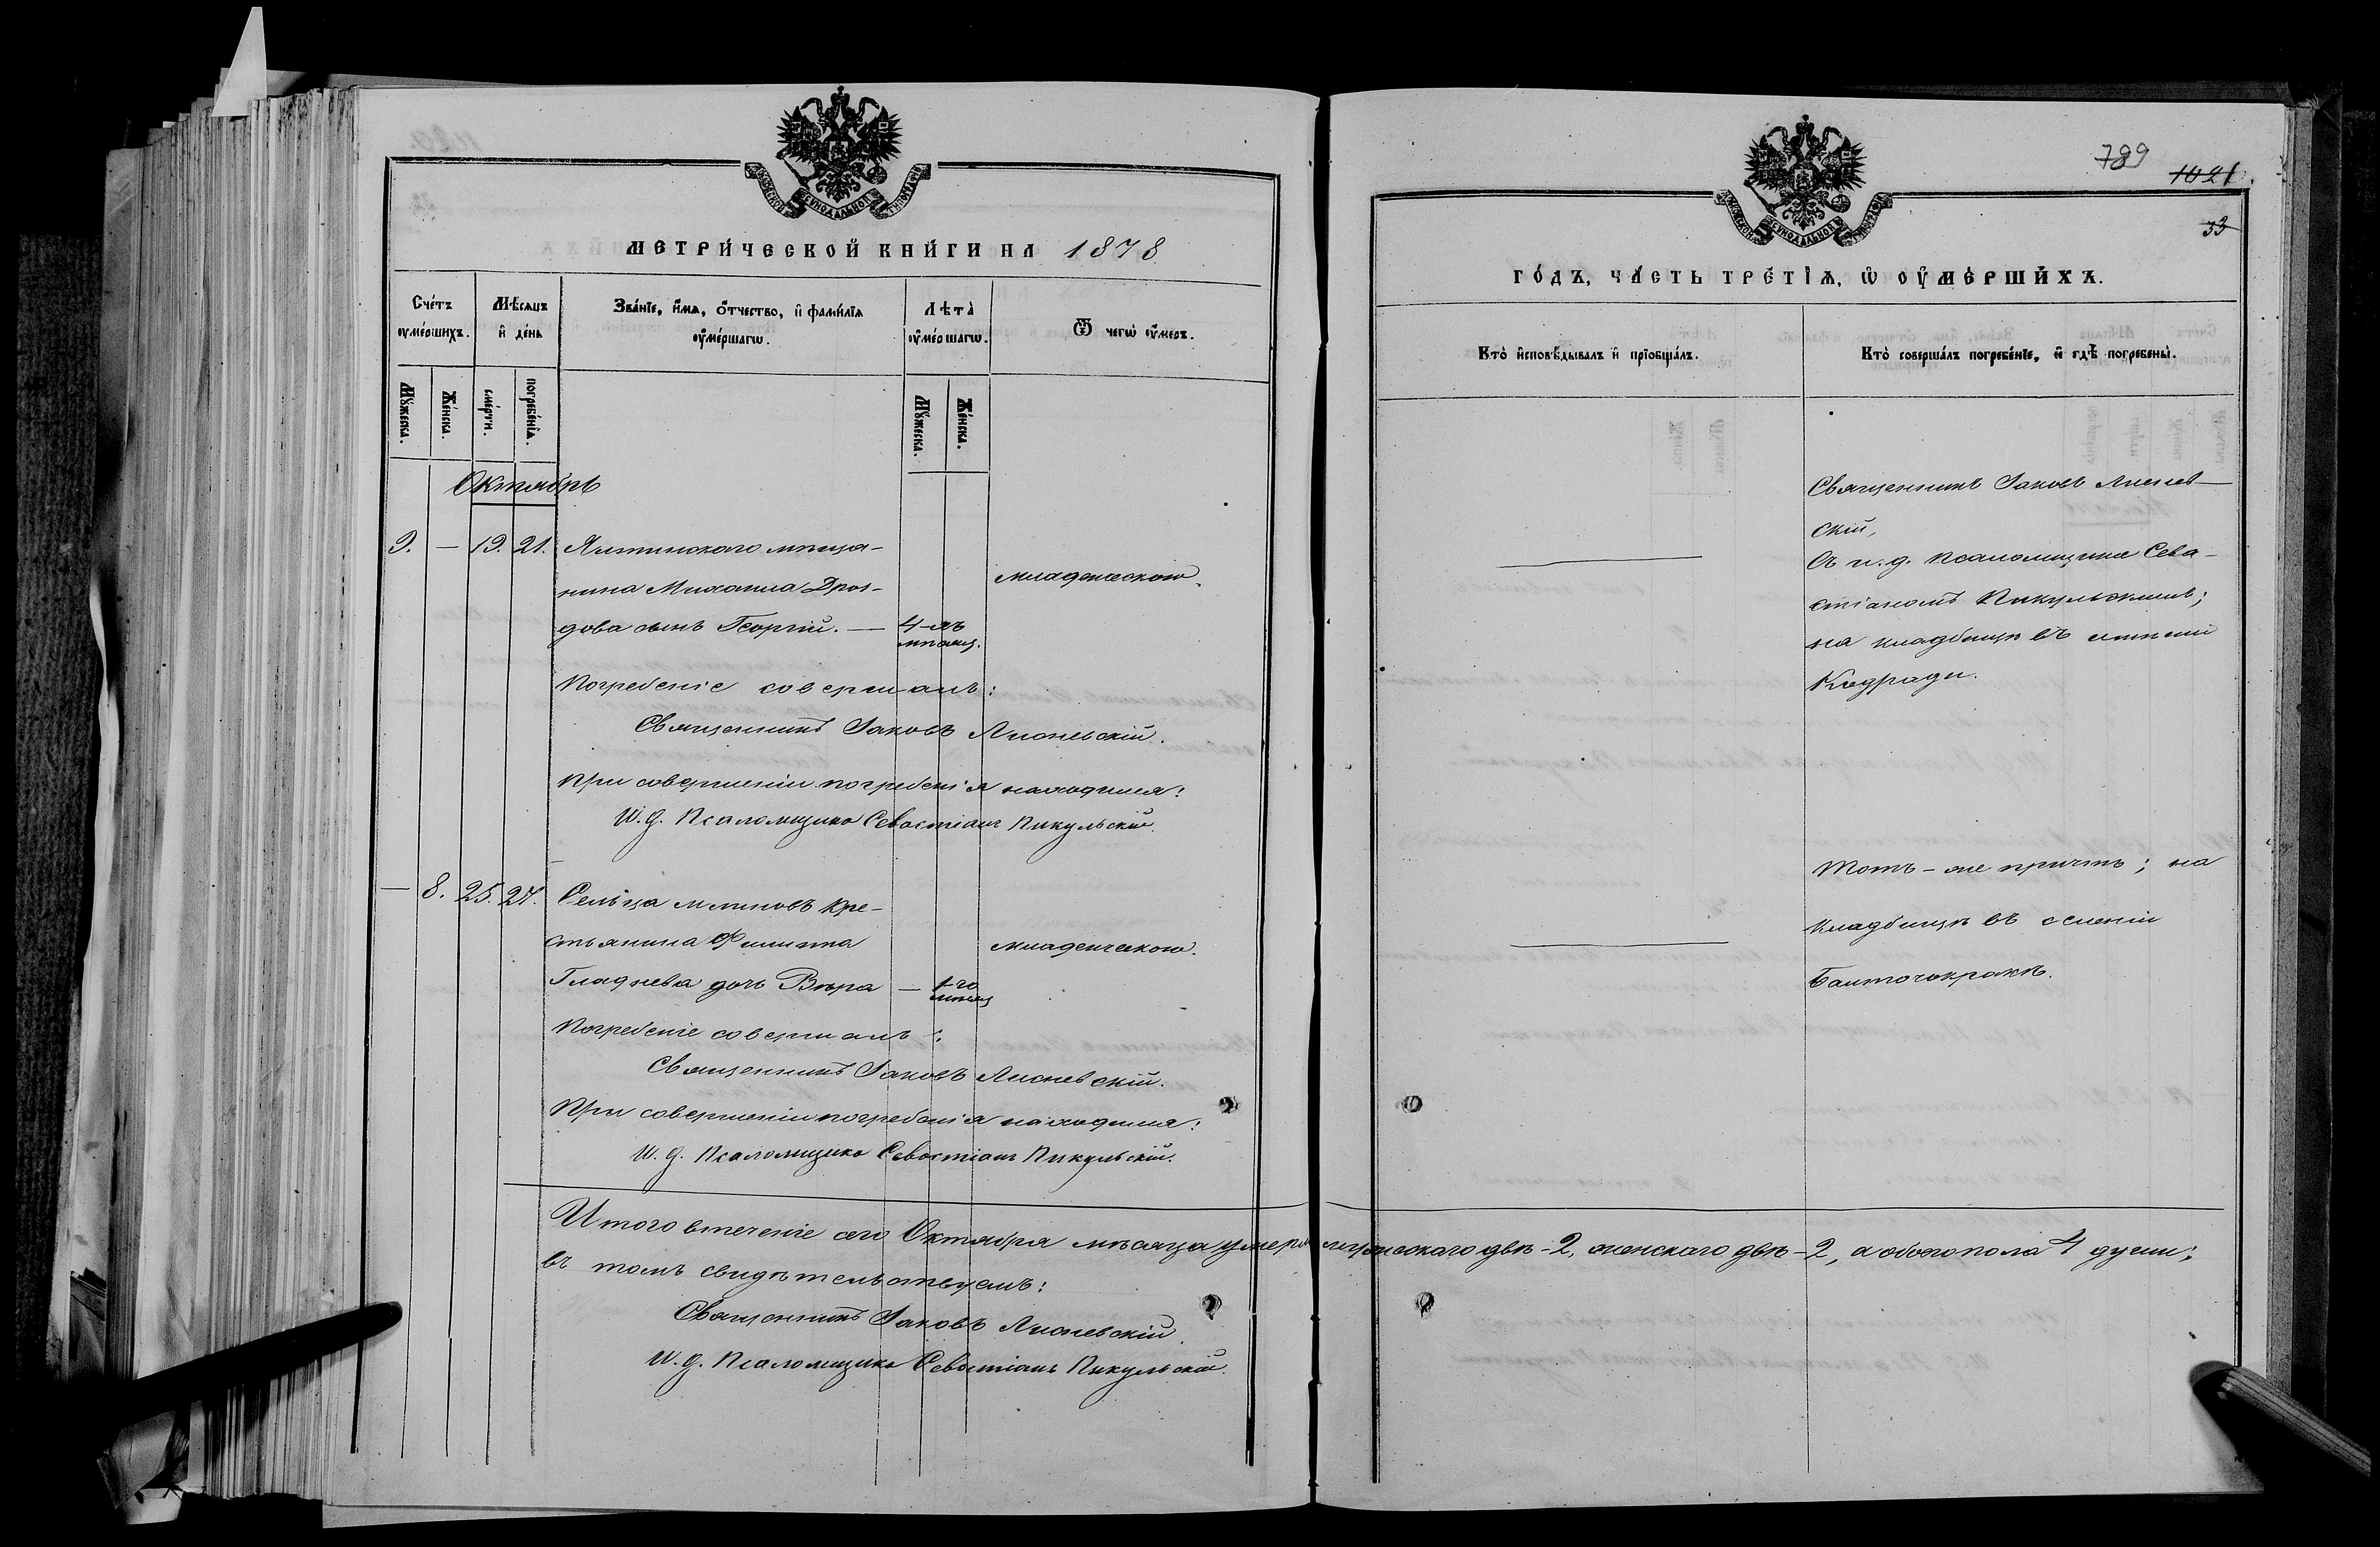 МЕТРИ́ЧЕСКОЙ КНИ́ГИ НА 1878
Сче́тъ ᲂумершихъ.
Мѣсяцъ и҆ де́нь
Зва́нїе, и҆́мѧ, ѻ҆́тчество, и҆ фами́лїѧ ᲂу҆ме́ршагѡ.
Лѣта̀ ᲂу҆ме́ршагѡ.
Ѿ чегѡ̀ ᲂу҆́меръ.
Мꙋ́жеска.
Же́нска.
сме́рти.
погребе́нїѧ.
Мꙋ́жеска.
Же́нска.
Октябрь
9. — 19. 21. Ялтинскаго мѣща-
нина Михаила Дроз-
дова сынъ Георгій. — 4-хъ
мѣсяц.
младенческою.
Погребеніе совершалъ:
Священникъ Іаковъ Лисневскій.
При совершеніи погребенія находился:
И. д. Псаломщика Севастіанъ Пикульскій.
— 8. 25. 27. Сельца кре-
стьянина Филиппа
Гладнева дочь Вѣра — 1-го
мѣсяц
младенческою.
Погребеніе совершалъ:
Священникъ Іаковъ Лисневскій.
При совершеніи погребенія находился:
И. д. Псаломщика Севастіанъ Пикульскій.
Итого втеченіе сего Октября мѣсяца умерло мужескаго двѣ - 2, женскаго двѣ - 2, а обоего пола 4 души;
въ томъ свидѣтельствуемъ:
Священникъ Іаковъ Лисневскій.
И. д. Псаломщика Севастіанъ Пикульскій.
789
1021
33
ГО́ДЪ, ЧА́СТЬ ТРЕ́ТЇѦ, Ѡ҆ ОУ҆МЕ́РШИХЪ.
Кто̀ и҆сповѣ́дывалъ и҆ прїобща́лъ.
Кто̀ соверша́лъ погребе́нїе, и҆ гдѣ̀ погребены̀.
Священникъ Іаковъ Лиснев-
скій,
Съ и. д. Псаломщика Сева-
стіаномъ Пикульскимъ;
на кладбищѣ въ имѣніи
Кадради.
Тотъ-же причтъ; на
кладбищѣ въ селеніи